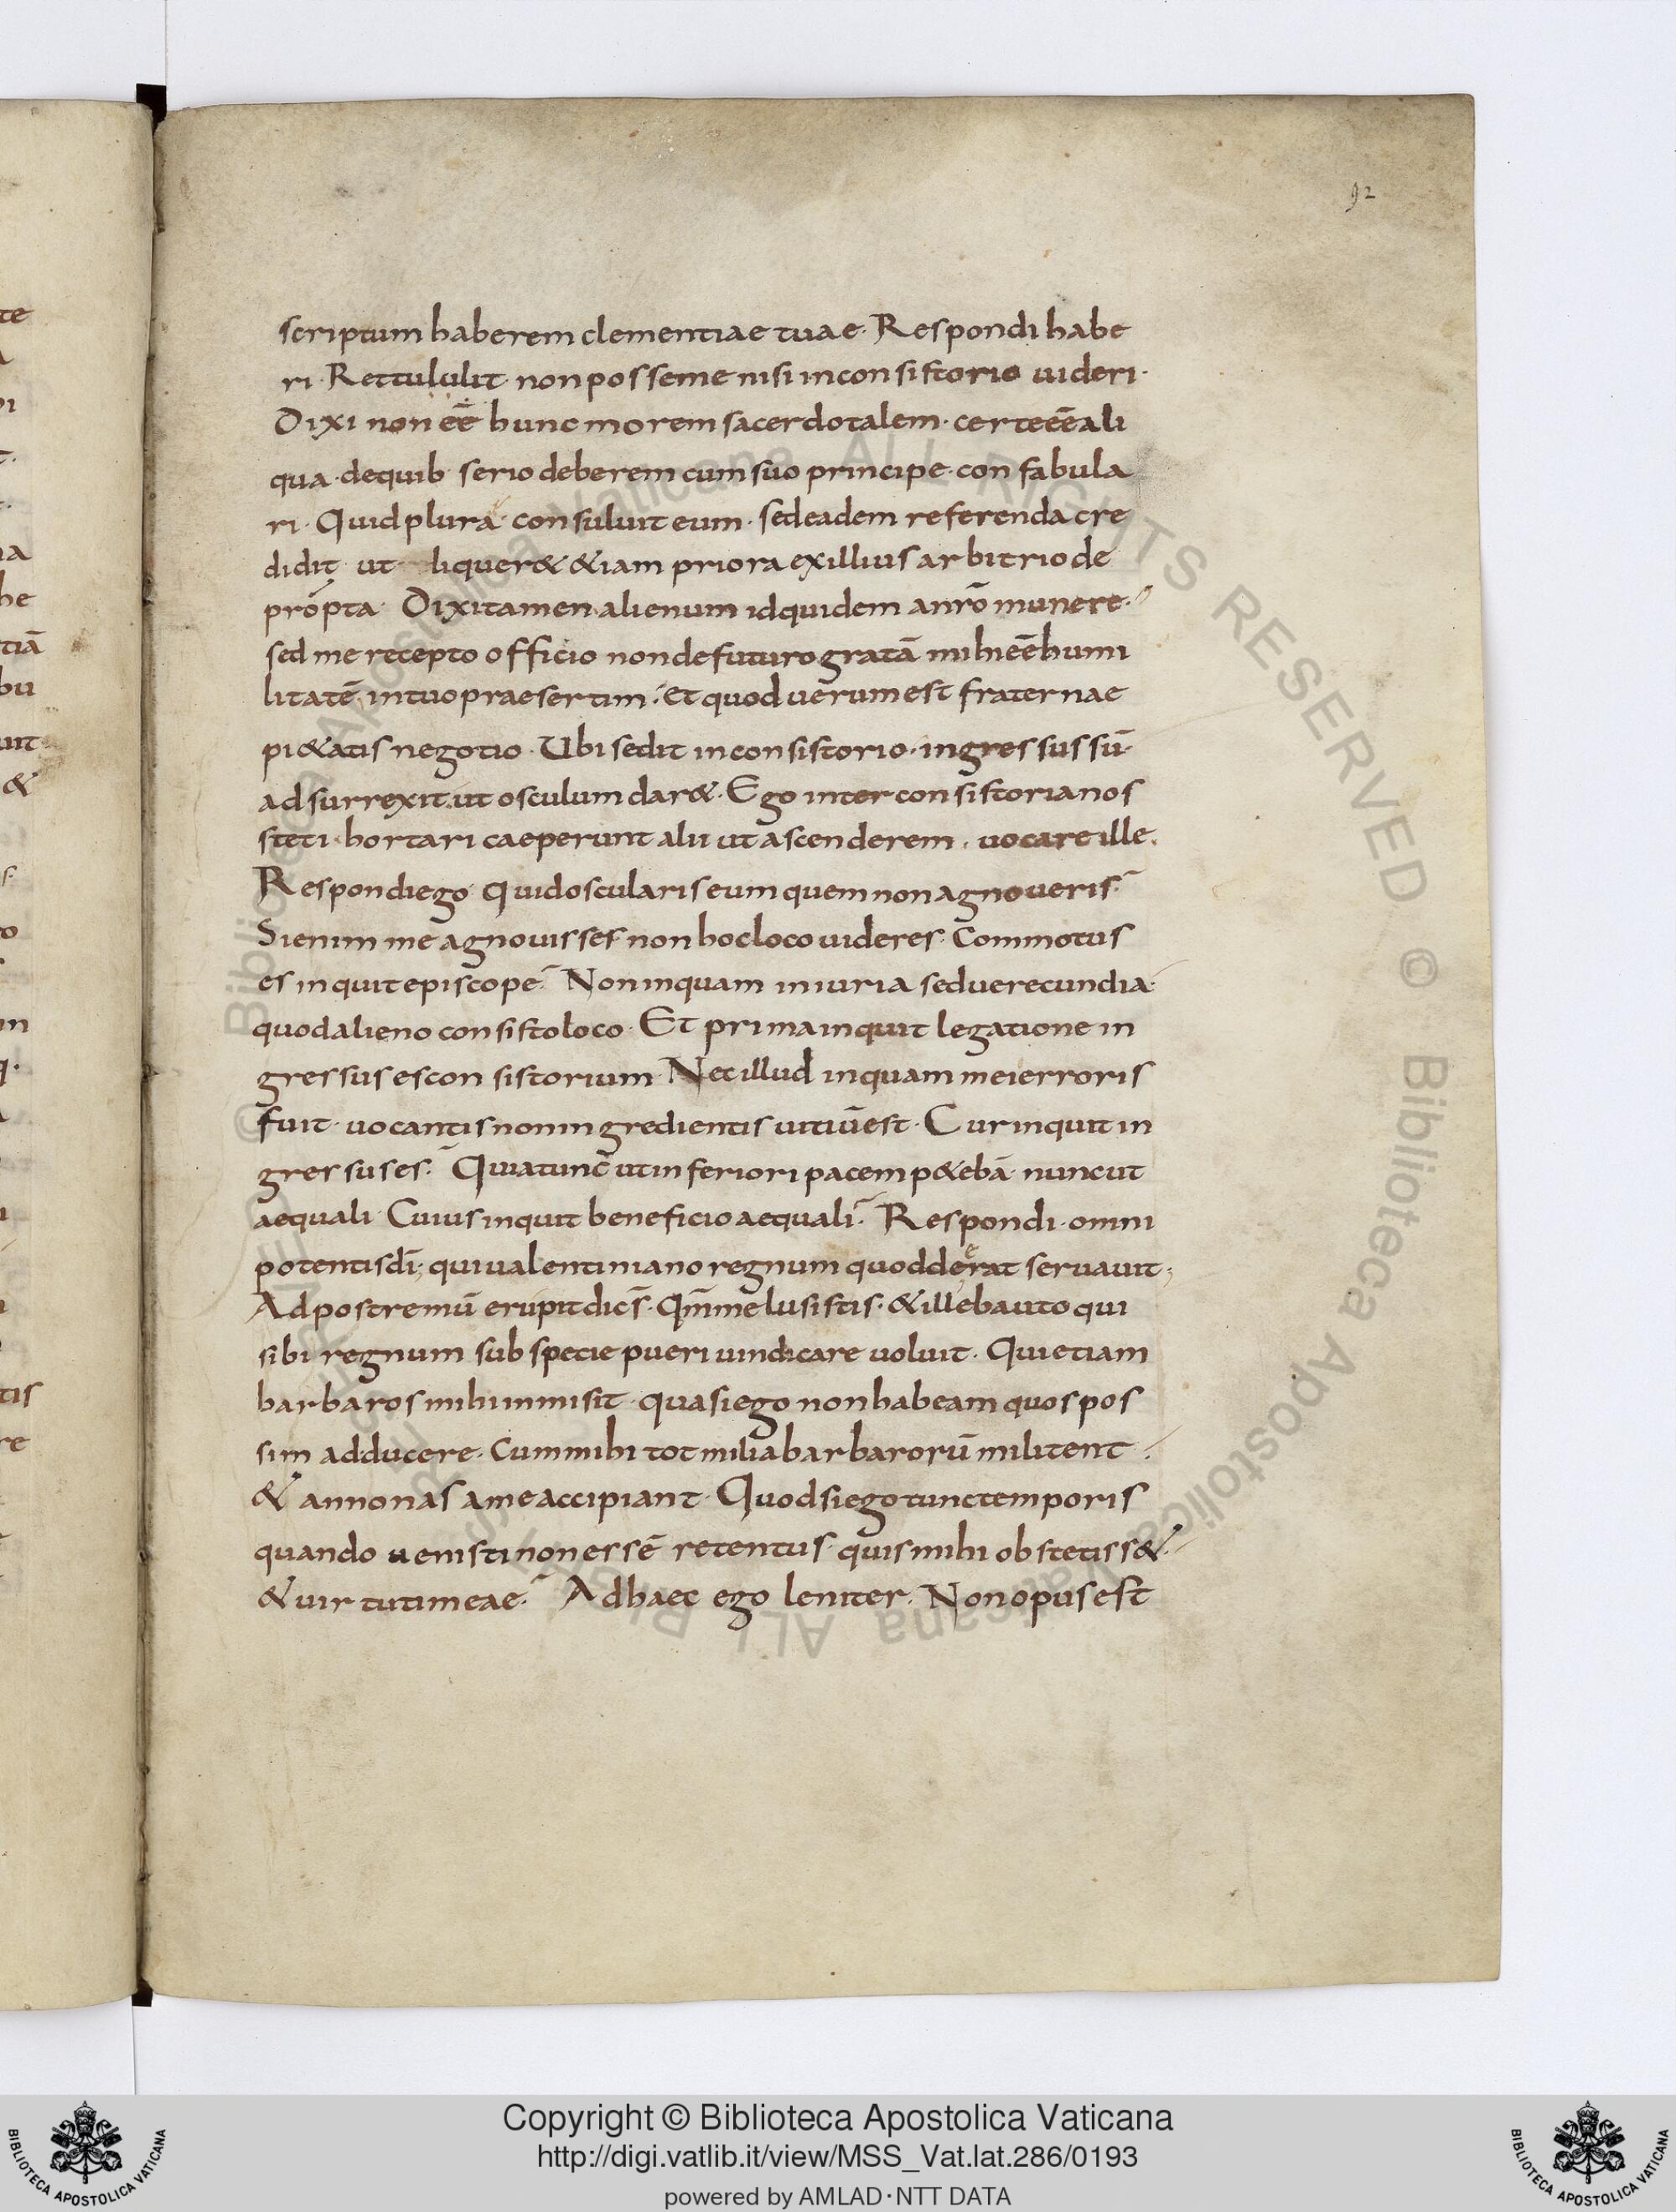 92
scriptum haberem clementiae tuae· Respondi habe
ri· Rettululit non posse me nisi in consistorio uideri·
Dixi non eē hunc morem sacerdotalem· certe eē ali
qua· de quib· serio deberem cum suo principe· con fabula
ri· Quid plura· consuluit eum· sed eadem referenda cre
didit ut liquer& &iam priora ex illius arbitrio de
prōpta· Dixi tamen alienum id quidem a nr̄o munere·
sed me recepto officio non defuturo gratā mihi eē humi
litatē· in tuo praesertim· et quod uerum est fraternae
pi&atis negotio· Ubi sedit in consistorio· ingressus sū·
adsurrexit ut osculum dar&· Ego inter consistorianos
steti· hortari caeperunt alii ut ascenderem· uocare ille·
Respondi ego quid oscularis eum quem non agnoueris·
Si enim me agnouisses non hoc loco uideres· Commotus
es inquit episcope· Non inquam iniuria sed uerecundia·
quod alieno consisto loco· Et prima inquit legatione in
gressus es con sistorium· Nec illud inquam mei erroris
fuit· uocantis non ingredientis uitiū est· Cur inquit in
gressus es· Quia tunc ut inferiori pacem p&ebā· nunc ut
aequali· Cuius inquit beneficio aequali· Respondi· omni
potentis dī· qui ualentiniano regnum quod dederat seruauit·
Ad postremū erupit dicēs· Qm̄ me lusistis· & ille bauto qui
sibi regnum sub specie pueri uindicare uoluit· Qui etiam
barbaros mihi inmisit· quasi ego non habeam quos pos
sim adducere· Cum mihi tot milia barbarorū militent·
& annonas a me accipiant· Quod si ego tunc temporis
quando uenisti non essē retentus· quis mihi obstetiss&·
& uirtuti meae· Ad haec ego leniter· Non opus est
te
bi
na
he
tiā
bu
uit
&
tis
re
Copyright © Biblioteca Apostolica Vaticana
http://digi.vatlib.it/view/MSS_Vat.lat.286/0193
powered by AMLAD·NTT DATA
BIBLIOTECA APOSTOLICA VATICANA
BIBLIOTECA APOSTOLICA VATICANA
© Biblioteca Apostolica Vaticana ALL RIGHTS RESERVED © Biblioteca Apostolica Vaticana ALL RIGHTS RESERVED